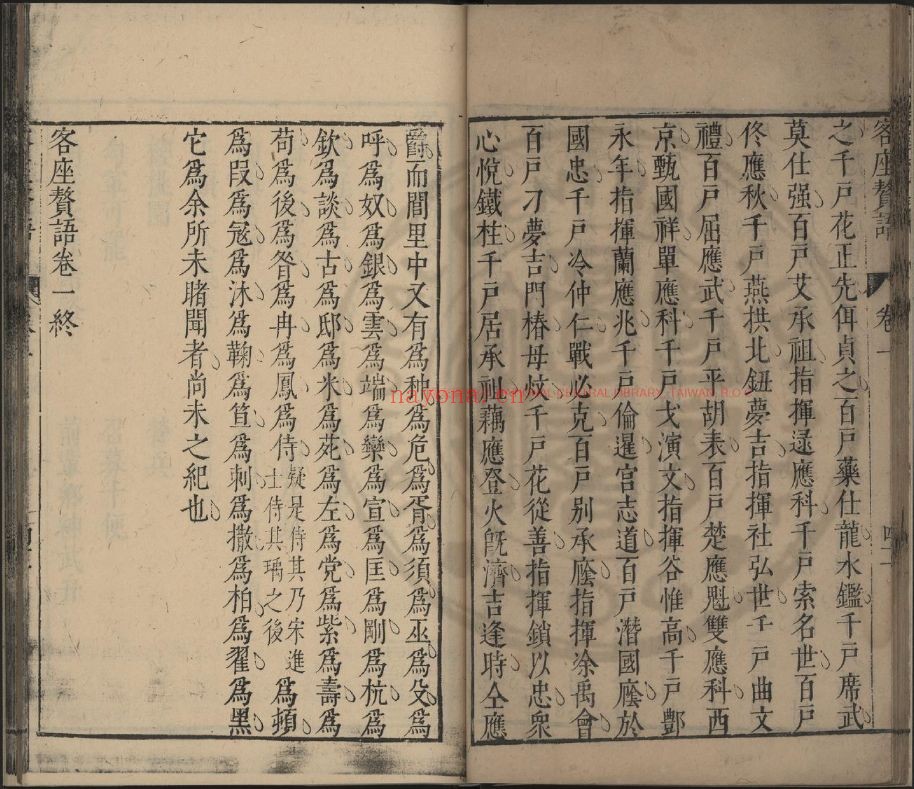 客座贅語 卷一 四十一
之千戶花正先佴貞之百戶藥仕龍水鑑千戶席武
莫仕强百戶艾承祖指揮逯應科千戶索名世百戶
佟應秋千戶燕拱北鈕夢吉指揮社弘世千戶曲文
禮百戶屈應武千戶平胡表百戶楚應魁雙應科西
京甄國祥單應科千戶戈演文指揮谷惟高千戶酆
永年指揮蘭應兆千戶倫暹宫志道百戶潛國廕於
國忠千戶冷仲仁戰必克百戶别承廕指揮涂禹會
百戶刁夢吉門椿母炆千戶花從善指揮鎖以忠衆
心悅鐵柱千戶居承祖藕應登火旣濟吉逢時仝應
爵而閭里中又有爲种爲危爲胥爲須爲巫爲皮爲
呼爲奴爲銀爲雲爲端爲欒爲宣爲匡爲剛爲杭爲
欽爲談爲古爲邸爲米爲苑爲左爲党爲紫爲壽爲
荀爲後爲昝爲冉爲鳳爲侍疑是侍其乃宋進士侍其瑀之後爲頓
爲叚爲冦爲沐爲鞠爲笪爲刺爲撒爲柏爲翟爲黑
它爲余所未賭聞者尚未之紀也
客座贅語卷一終
nayonn.cn
NATIONAL CENTRAL LIBRARY, TAIWAN, R.O.C.